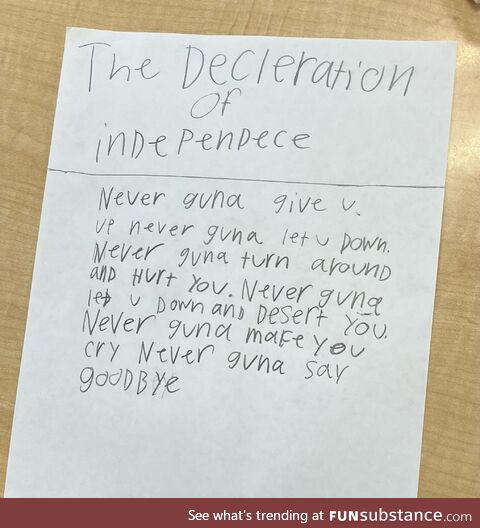 The Decleration
Of
inDePenDece
Never guna give u.
up never guna let u Down.
Never guna turn around
anD Hurt you. Never guna
let u Down and Desert You.
Never guna make you
cry Never guna say
gooDBye
See what's trending at FUNsubstance.com